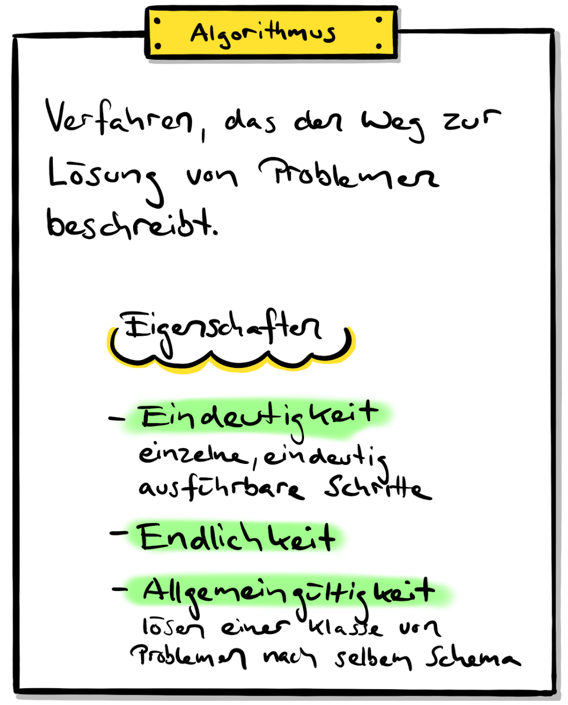 Algorithmus
Verfahren, das den Weg zur
Lösung von Problemen
beschreibt.
Eigenschaften
- Eindeutigkeit
einzelne, eindeutig
ausführbare Schritte
- Endlichkeit
- Allgemeingültigkeit
lösen einer Klasse von
Problemen nach selbem Schema